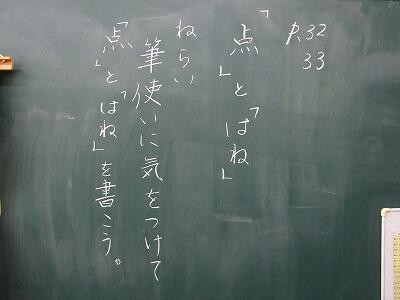 P.32
33
「点」と「はね」
ねらい
筆使いに気をつけて
「点」と「はね」を書こう。